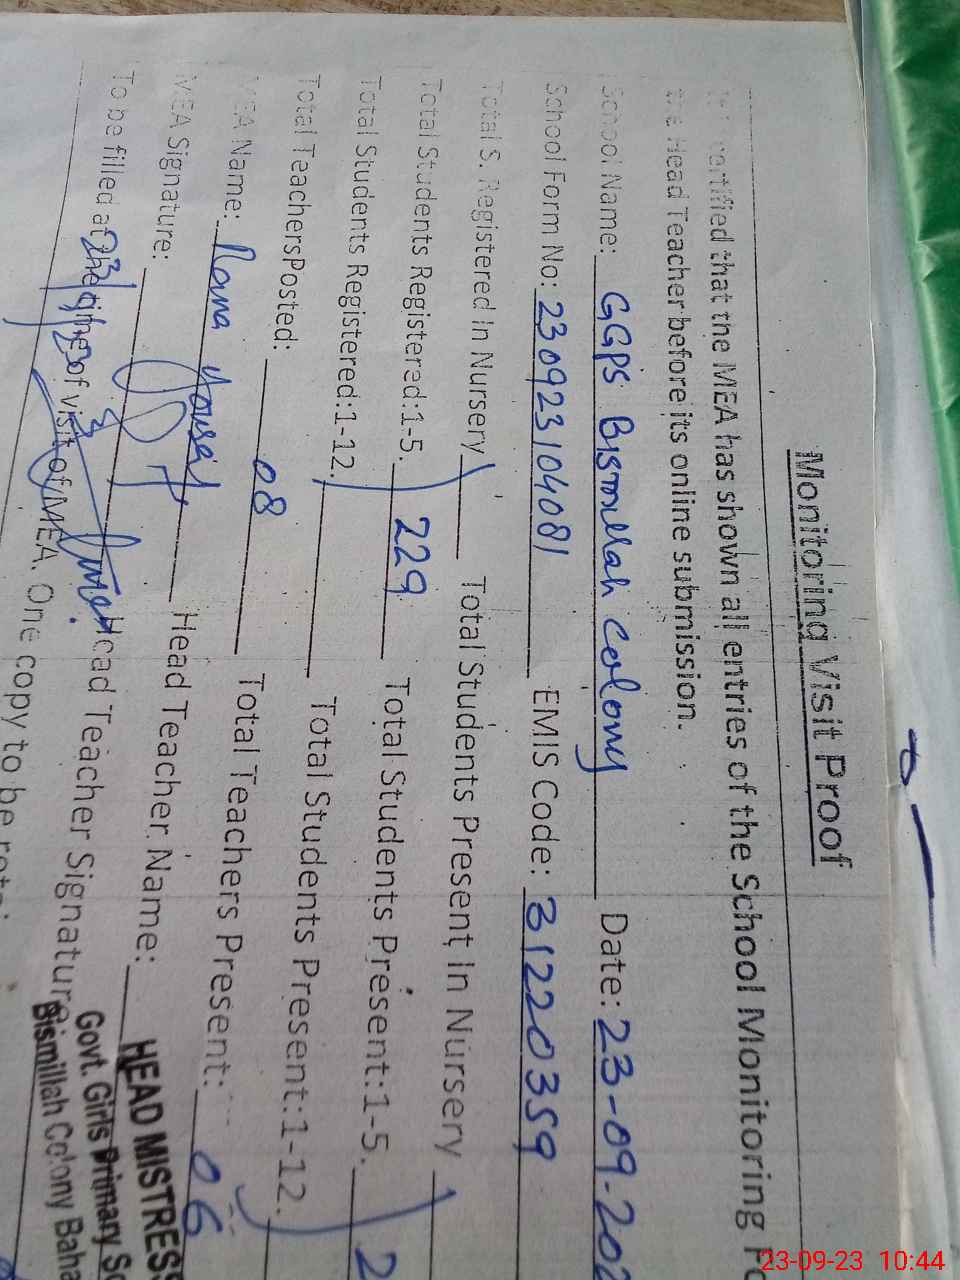 Monitoring Visit Proof
certified that the MEA has shown all entries of the School Monitoring
the Head Teacher before its online submission.
School Name: GGPS Bismillah Colony Date: 23-09-202
School Form No: 230923104081 EMIS Code: 31220359
Total S. Registered In Nursery Total Students Present In Nursery
Total Students Registered:1-5. 229 Total Students Present:1-5. 2
Total Students Registered:1-12. Total Students Present:1-12.
Total TeachersPosted: 08 Total Teachers Present: 06
MEA Name: Rana Yousaf Head Teacher Name:
MEA Signature: Head Teacher Signature
HEAD MISTRESS
Govt. Girls Primary Sc
Bismillah Colony Baha
To be filled at the time of visit of MEA. One copy to be
23-09-23 10:44